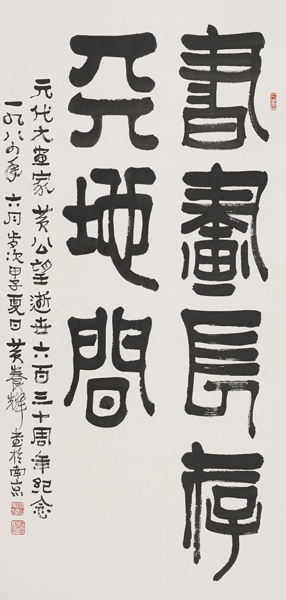 書畫長存
天地間
元代大畫家黃公望逝世六百三十周年紀念
一九八四年六月歲次甲子夏日黃養輝畫於南京